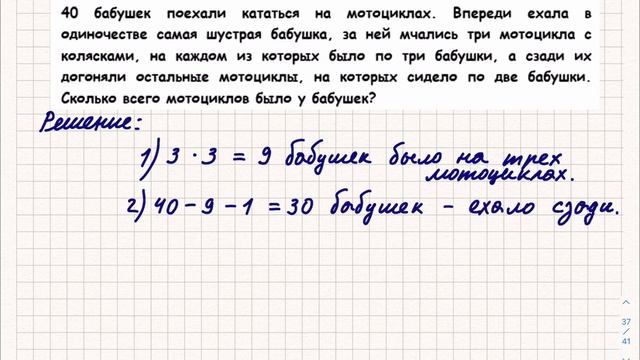 40 бабушек поехали кататься на мотоциклах. Впереди ехала в
одиночестве самая шустрая бабушка, за ней мчались три мотоцикла с
колясками, на каждом из которых было по три бабушки, а сзади их
догоняли остальные мотоциклы, на которых сидело по две бабушки.
Сколько всего мотоциклов было у бабушек?
Решение:
1) 3 · 3 = 9 бабушек было на трех
мотоциклах.
2) 40 - 9 - 1 = 30 бабушек - ехало сзади.
37
/
41